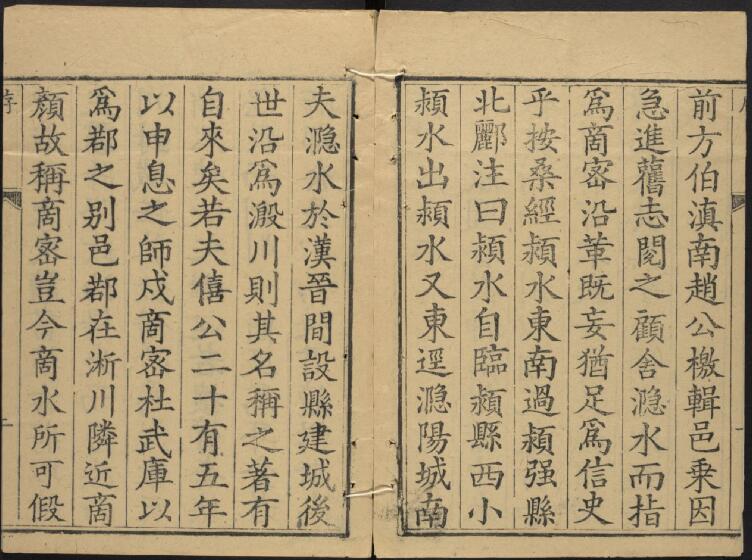 前方伯滇南趙公檄輯邑乗因
急進舊志閱之顧舍濦水而指
為商宻沿革既妄猶足為信史
乎按桑經潁水東南過潁强縣
北酈注曰潁水自臨潁縣西小
潁水出潁水又東逕濦陽城南
夫濦水於漢晉間設縣建城後
世沿為溵川則其名稱之著有
自來矣若夫僖公二十有五年
以申息之師戍商宻杜武庫以
為鄀之别邑鄀在淅川隣近商
顏故稱商宻豈今商水所可假
序